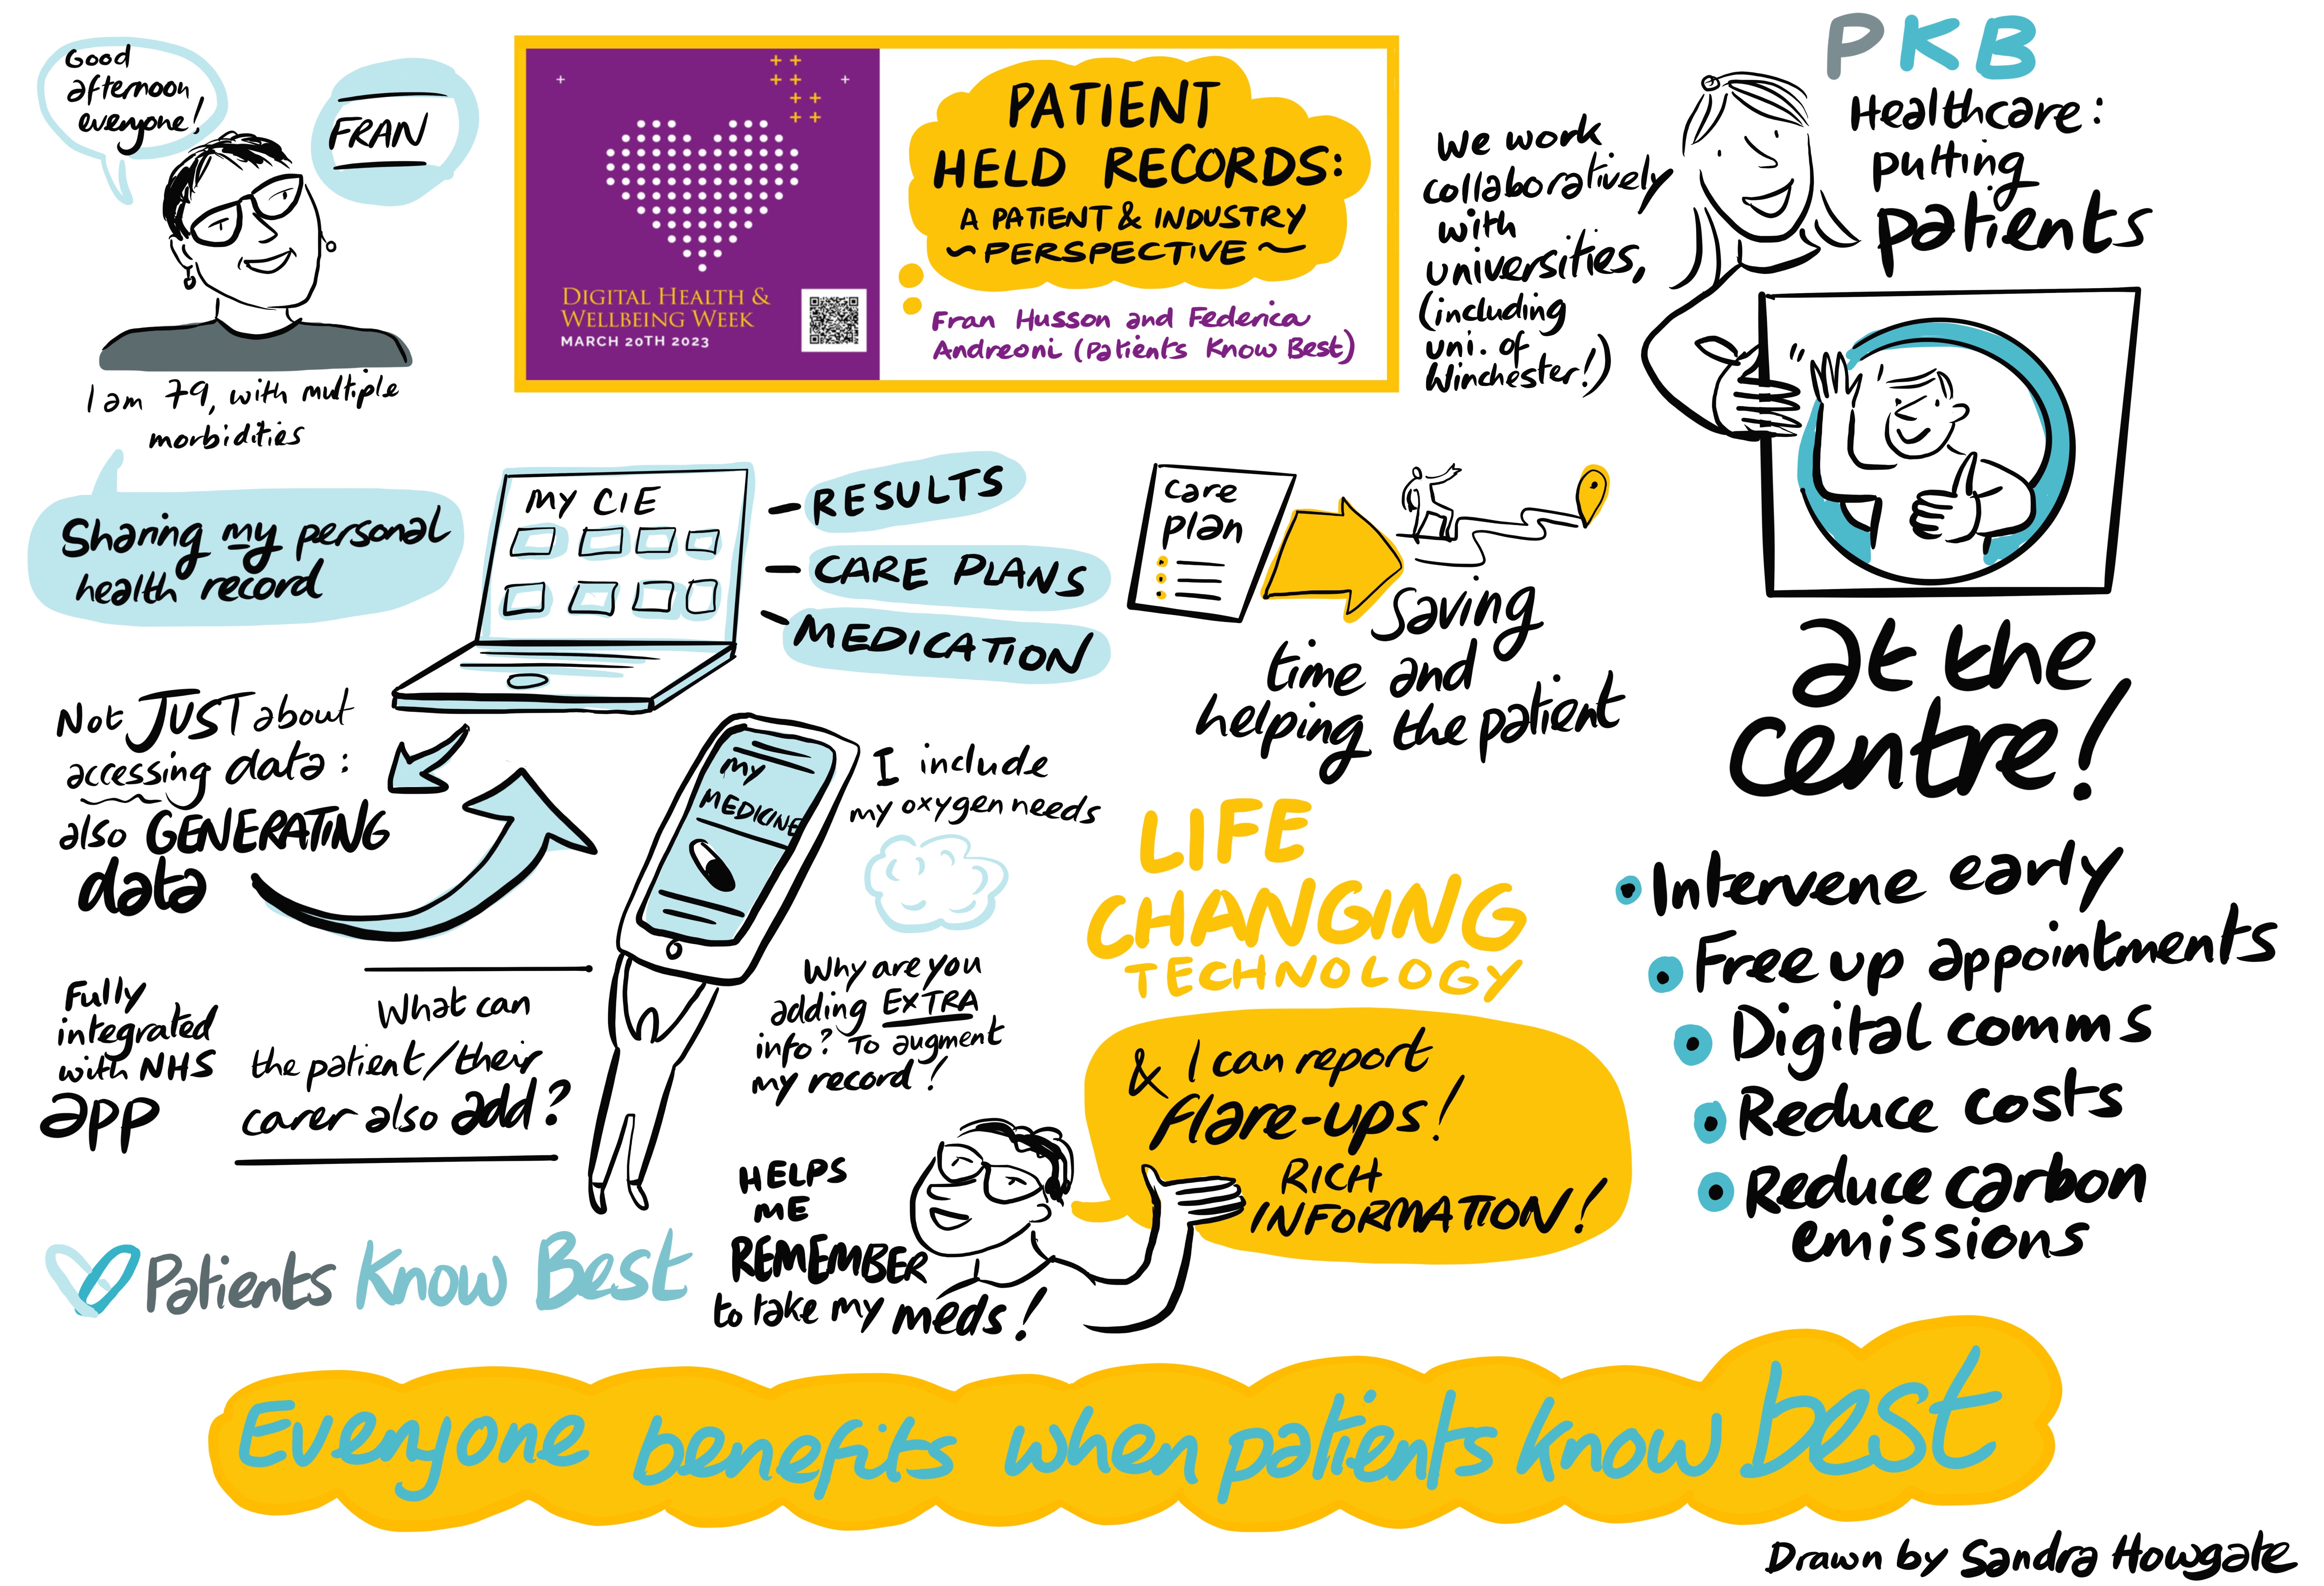 Good
afternoon
everyone!
FRAN
I am 79, with multiple
morbidities
DIGITAL HEALTH &
WELLBEING WEEK
MARCH 20TH 2023
PATIENT
HELD RECORDS:
A PATIENT & INDUSTRY
~PERSPECTIVE~
Fran Husson and Federica
Andreoni (Patients Know Best)
We work
collaboratively
with
universities,
(including
uni. of
Winchester!)
PKB
Healthcare:
putting
patients
at the
centre!
Sharing my personal
health record
MY CIE
- RESULTS
- CARE PLANS
- MEDICATION
care
plan
Saving
time and
helping the patient
Not JUST about
accessing data:
also GENERATING
data
MY
MEDICINE
I include
my oxygen needs
LIFE
CHANGING
TECHNOLOGY
• Intervene early
• Free up appointments
• Digital comms
• Reduce costs
• Reduce carbon
emissions
Fully
integrated
with NHS
app
What can
the patient/their
carer also add?
Why are you
adding EXTRA
info? To augment
my record!
& I can report
flare-ups!
RICH
INFORMATION!
HELPS
ME
REMEMBER
to take my meds!
Patients Know Best
Everyone benefits when patients know best
Drawn by Sandra Howgate